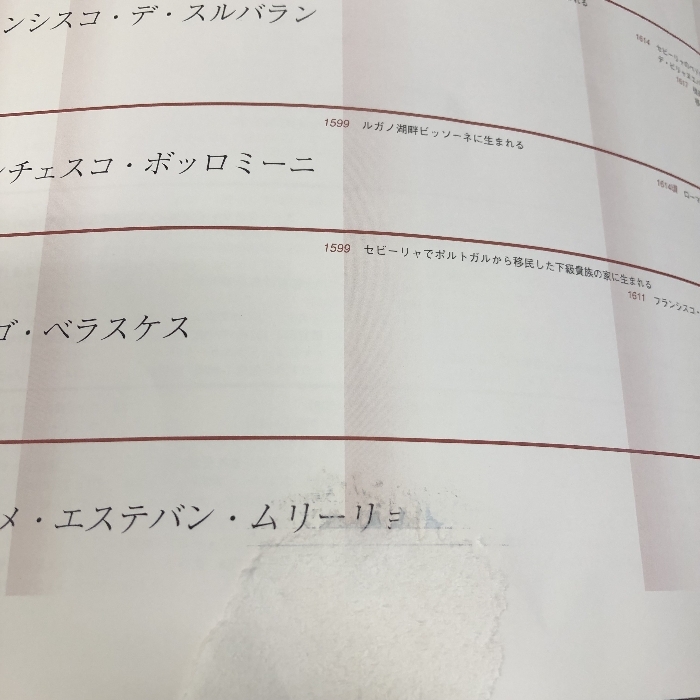 ンシスコ・デ・スルバラン
1614 セビーリャの
1617
1599 ルガノ湖畔ビッソーネに生まれる
ンチェスコ・ボッロミーニ
1614頃 ローマ
1599 セビーリャでポルトガルから移民した下級貴族の家に生まれる
1611 フランシスコ・
ゴ・ベラスケス
メ・エステバン・ムリーリョ